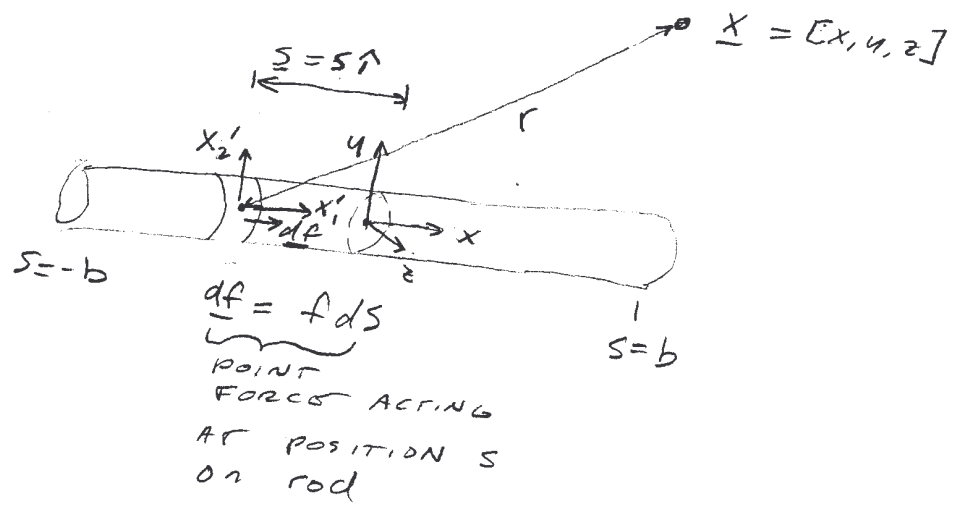 x = [x, y, z]
s = s î
r
x₂'
y
x₁'
x
df
z
s=-b
df = f ds
s=b
POINT
FORCE ACTING
AT POSITION s
on rod